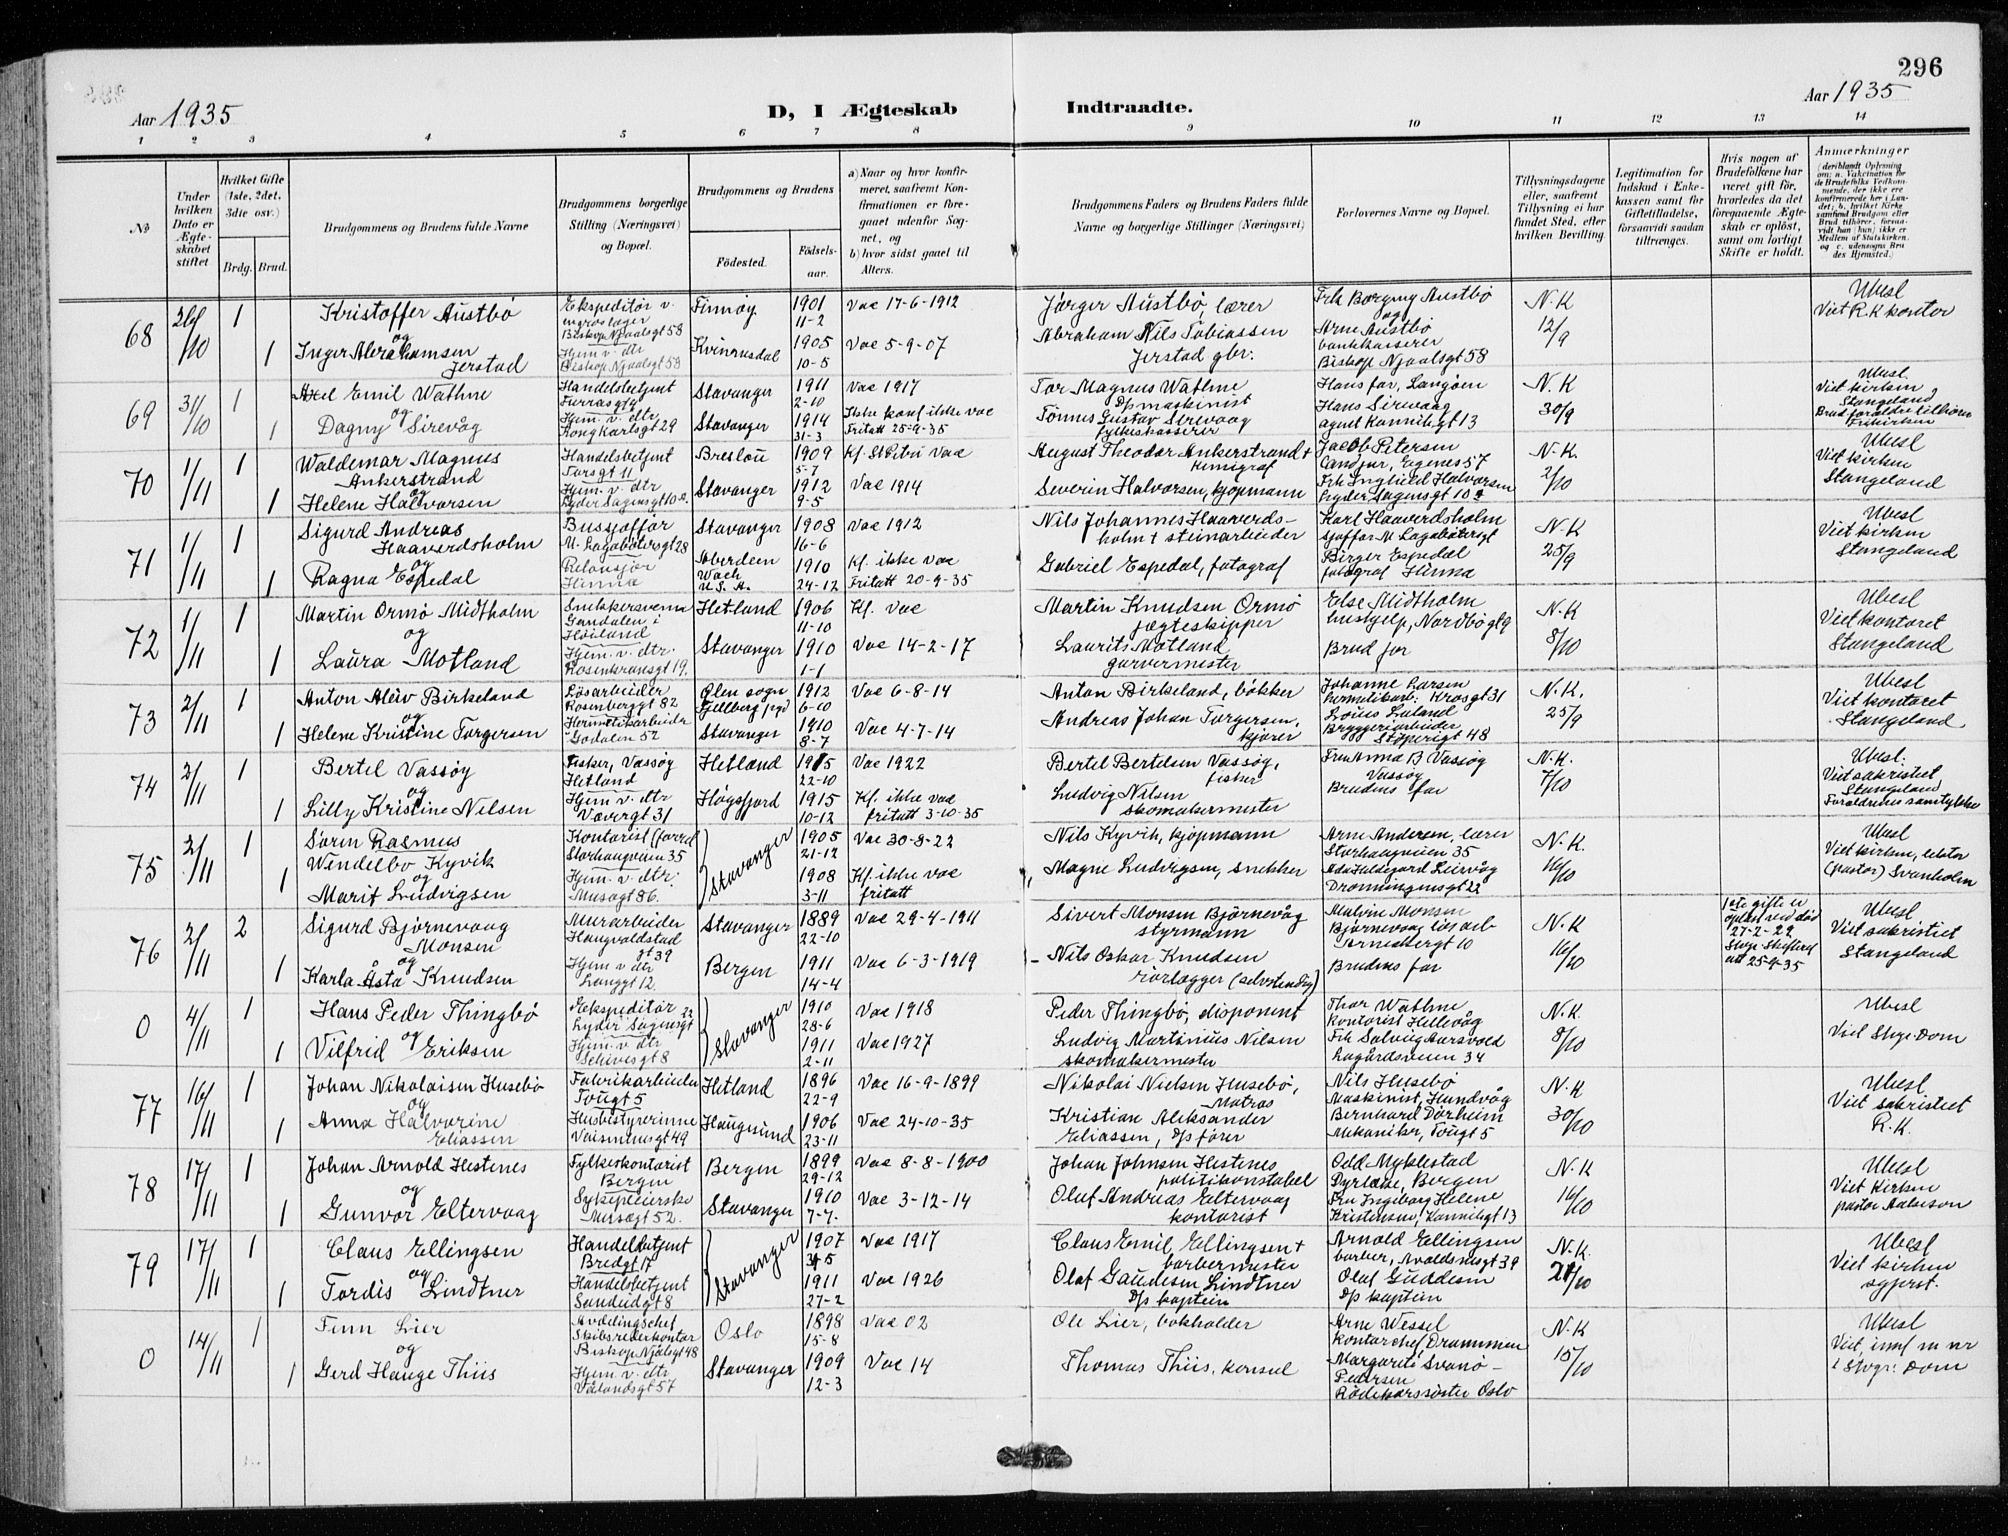 296
Aar 1935
D, I Ægteskab Indtraadte.
Aar 1935
1 2 3 4 5 6 7 8 9 10 11 12 13 14
No
Under hvilken Dato er Ægteskabet stiftet
Hvilket Gifte (1ste, 2det, 3die osv.)
Brdg. Brud.
Brudgommens og Brudens fulde Navne
Brudgommens borgerlige Stilling (Næringsvei) og Bopæl.
Brudgommens og Brudens
Fødested.
Fødselsaar.
a) Naar og hvor konfirmeret, saafremt Konfirmationen er foregaaet udenfor Sognet, og
b) hvor sidst gaaet til Alters.
Brudgommens Faders og Brudens Faders fulde Navne og borgerlige Stillinger (Næringsvei)
Forlovernes Navne og Bopæl.
Tillysningsdagene eller, saafremt Tillysning ei har fundet Sted, efter hvilken Bevilling.
Legitimation for Indskud i Enkekassen samt for Giftetilladelse, forsaavidt saadan tiltrænges.
Hvis nogen af Brudefolkene har været gift før, hvorledes da det foregaaende Ægteskab er opløst, samt om lovligt Skifte er holdt.
Anmærkninger
(deriblandt Oplysning om: a. Vakcination for de Brudefolks Vedkommende, der ikke ere konfirmerede her i Landet; b. hvilket Kirkesamfund Brudgom eller Brud tilhører, forsaavidt han (hun) ikke er Medlem af Statskirken, og c. udensogns Brudes Hjemsted.)
68 26/10 1 Kristoffer Austbø
Ekspeditør v. engroslager
Biskop Njaalsgt 58
Finnøy 1901 11-2 Vac 17-6-1912
Jørger Austbø, lærer
Frk Borgny Austbø
N.K 12/9
Ubesl
Viet R.K kontor
og
1 Inger Abrahamsen Jerstad
Hjem v. dtr
Biskop Njaalsgt 58
Kvinesdal 1905 10-5 Vac 5-9-07
Abraham Nils Tobiassen Jerstad gbr.
og Arne Austbø bankkasserer
Biskop Njaalsgt 58
69 31/10 1 Axel Emil Wathne
Handelsbetjent
Stavanger 1911 2-10 Vac 1917
Tor Magnus Wathne D/s maskinist
Hans far, Langøen
N.K 30/9
Ubesl
Viet kirken Stangeland
Brud foreldre tilhører Frikirken
og
1 Dagny Sirevåg
Hjem. v. dtr
Kong Karlsgt 29
Stavanger 1914 31-3 Ikke konf ikke vac
Fritatt 25-9-35
Tønnes Gustav Sirevaag fylkeskasserer
Hans Sirevaag
Agnet Kannikgt 13
70 1/11 1 Waldemar Magnus Ankerstrand
Handelsbetjent
Torsgt 11
Breslau 1909 5-7 Kf. St Petri Vac
August Theodor Ankerstrand +
Jacob Petersen
Egenes 57
N.K. 2/10
Ubesl
Viet kirken
Stangeland
og
1 Helene Halvorsen
Hjem. v. dtr
Lyder Sagensgt 10 a.
Stavanger 1912 9-5 Vac 1914
Severin Halvorsen, kjøpmann
Frk Ingfield Halvorsen
Lyder Sagensgt 10 a
71 1/11 1 Sigurd Andreas Haaverdsholm
Bussjaffør
M. Lagabøtersgt 28
Stavanger 1908 16-6 Vac 1912
Nils Johannes Haaverdsholm + steinarbeider
Karl Haaverdsholm
sjaffør M Lagabøtersgt
N.K 25/9
Ubesl
Viet kirken
Stangeland
og
1 Ragna Espedal
Hinna
Aberdeen Wach U.S.A. 1910 24-12 Kf. ikke vac
Fritatt 20-9-35
Gabriel Espedal, fotograf
Birger Espedal
fotograf Hinna
72 1/11 1 Martin Ormø Midtholm
Snekkersvenn
Gandalen i Høiland
Hetland 1906 11-10 Kf. Vac
Martin Knudsen Ormø jægteskipper
Else Midtholm
hushjelp, Nordbøgt 9
N.K 8/10
Ubesl
Viet kontoret
Stangeland
og
1 Laura Motland
Hjem. v. dtr.
Rosenkransgt 19.
Stavanger 1910 1-1 Vac 14-2-17
Laurits Motland garvermester
Brud far
73 2/11 1 Anton Aleiv Birkeland
Løsarbeider
Rosenberggt 82
Ølen sogn Fjellberg pgd 1912 6-10 Vac 6-8-14
Anton Birkeland, bøkker
Johanne Larsen
hermetikarb. Krosgt 31
N.K. 25/9
Ubesl
Viet kontoret
Stangeland
og
1 Helene Kristine Torgersen
Hermetikarbeider
Godalen 52
Stavanger 1910 8-7 Vac 4-7-14
Andreas Johan Torgersen, kjører
Louis Luland
Bryggeriarbeider
Støperigt 48
74 2/11 1 Bertel Vassøy
Fisker, Vassøy
Hetland
Hetland 1915 22-10 Vac 1922
Bertel Bertelsen Vassøy, fisker
Fru Anna B Vassøy
Vassøy
N.K. 7/10
Ubesl.
Viet sakristiet,
Stangeland
Foreldrenes samtykke
og
1 Lilly Kristine Nilsen
Hjem v. dtr
Vævergt 31
Høgsfjord 1915 10-12 Kf. ikke vac
fritatt 3-10-35
Ludvig Nilsen skomakermester
Brudens far
75 2/11 1 Søren Rasmus Wendelbo Kyvik
Kontorist (forrd
Storhaugveien 35
Stavanger 1905 21-12 Vac 30-8-22
Nils Kyvik, kjøpmann
Arne Andersen, lærer
Storhaugveien 35
N.K. 16/10
Ubesl
Viet kirken, lektor
(pastor) Svanholm
og
1 Marit Ludvigsen
Hjem. v. dtr.
Musegt 86.
1908 3-11 Kf. ikke vac
fritatt
Magne Ludvigsen, snekker
Ada Hildegard Leirvåg
Dronningensgt 22
76 2/11 2 Sigurd Bjørnevaag Monsen
Murarbeider
Haugvaldstadgt 39
Stavanger 1889 22-10 Vac 29-4-1911
Sivert Monsen Bjørnevåg styrmann
Malvin Monsen
Bjørnevaag løsarb
Arnebergt 10
N.K 16/10
1ste gifte er opløst ved død 27-2-22
Stvgr. Skifteret att 25-9-35
Ubesl
Viet sakristiet
Stangeland
og
1 Karla Åsta Knudsen
Hjem v dtr
Langgt 12.
Bergen 1911 14-4 Vac 6-3-1919
Nils Oskar Knudsen rørlegger (selvstendig)
Brudens far
0 4/11 1 Hans Peder Thingbø
Ekspeditør
Lyder Sagensgt 22
Stavanger 1910 28-6 Vac 1918
Peder Thingbø, disponent
Thor Wathne
kontorist Hillevåg
N.K. 8/10
Ubesl
Viet Stvgr. Dom
og
1 Vilfrid Eriksen
Hjem. v. dtr
Schivesgt 8
1911 2-11 Vac 1927
Ludvig Martinius Nilsen skomakermester
Frk Solveig Aarsvold
Lagårdsveien 34
77 16/11 1 Johan Nikolaisen Husebø
Fabrikarbeider
Tougt 5
Hetland 1896 22-9 Vac 16-9-1899
Nikolai Nielsen Husebø, Matros
Nils Husebø
Maskinist, Hundvåg
N.K 30/10
Ubesl
Viet sakristiet
R.K.
og
1 Anna Halvorine Eliassen
Husbestyrerinne
Vaisenhusgt 49
Haugesund 1906 23-11 Vac 24-10-35
Kristian Aleksander Eliassen, D/s fører
Bernhard Dorheim
Mekaniker, Tougt 5
78 17/11 1 Johan Arnold Hestenes
Fylkeskontorist
Bergen
Bergen 1899 29-12 Vac 8-8-1900
Johan Johnsen Hestenes politikonstabel
Odd Myklestad
Dyrlæge, Bergen
N.K 16/10
Ubesl
Viet Kirken
pastor
og
1 Gunvor Eltervaag
Sykepleierske
Musegt 52.
Stavanger 1910 7-7. Vac 3-12-14
Oluf Andreas Eltervaag kontorist
Fru Ingeborg Helene
Kristensen, Kannikgt 13
79 17/11 1 Claus Ellingsen
Handelsbetjent
Bredgt 17
Stavanger 1907 Vac 1917
Claus Emil Ellingsen + barbermester
Arnold Ellingsen
barber, Avaldsnesgt 39
N.K. 21/10
Ubesl
Viet kirken
sgprst.
og
1 Tordis Lindtner
Handelsbetjent
Sandeidgt 8
1911 27-2 Vac 1926
Olaf Gaudesen Lindtner D/s kaptein
Olaf Guddesen
D/s kaptein
0 14/11 1 Finn Lier
Avdelingschef
Skibsrederkontor
Biskop Njålsgt 48
Oslo 1898 15-8 Vac 02
Ole Lier, bokholder
Arne Wessel
kontorchef Drammen
N.K 15/10
Ubesl
Viet, innf m nr
i Stvgr: Dom
og
1 Gerd Hauge Thiis
Hjem. v. dtr
Vålandsgt 57
Stavanger 1909 12-3 Vac 14
Thomas Thiis, konsul
Margarete Svanø-
Pedersen
Rødekorssøster Oslo